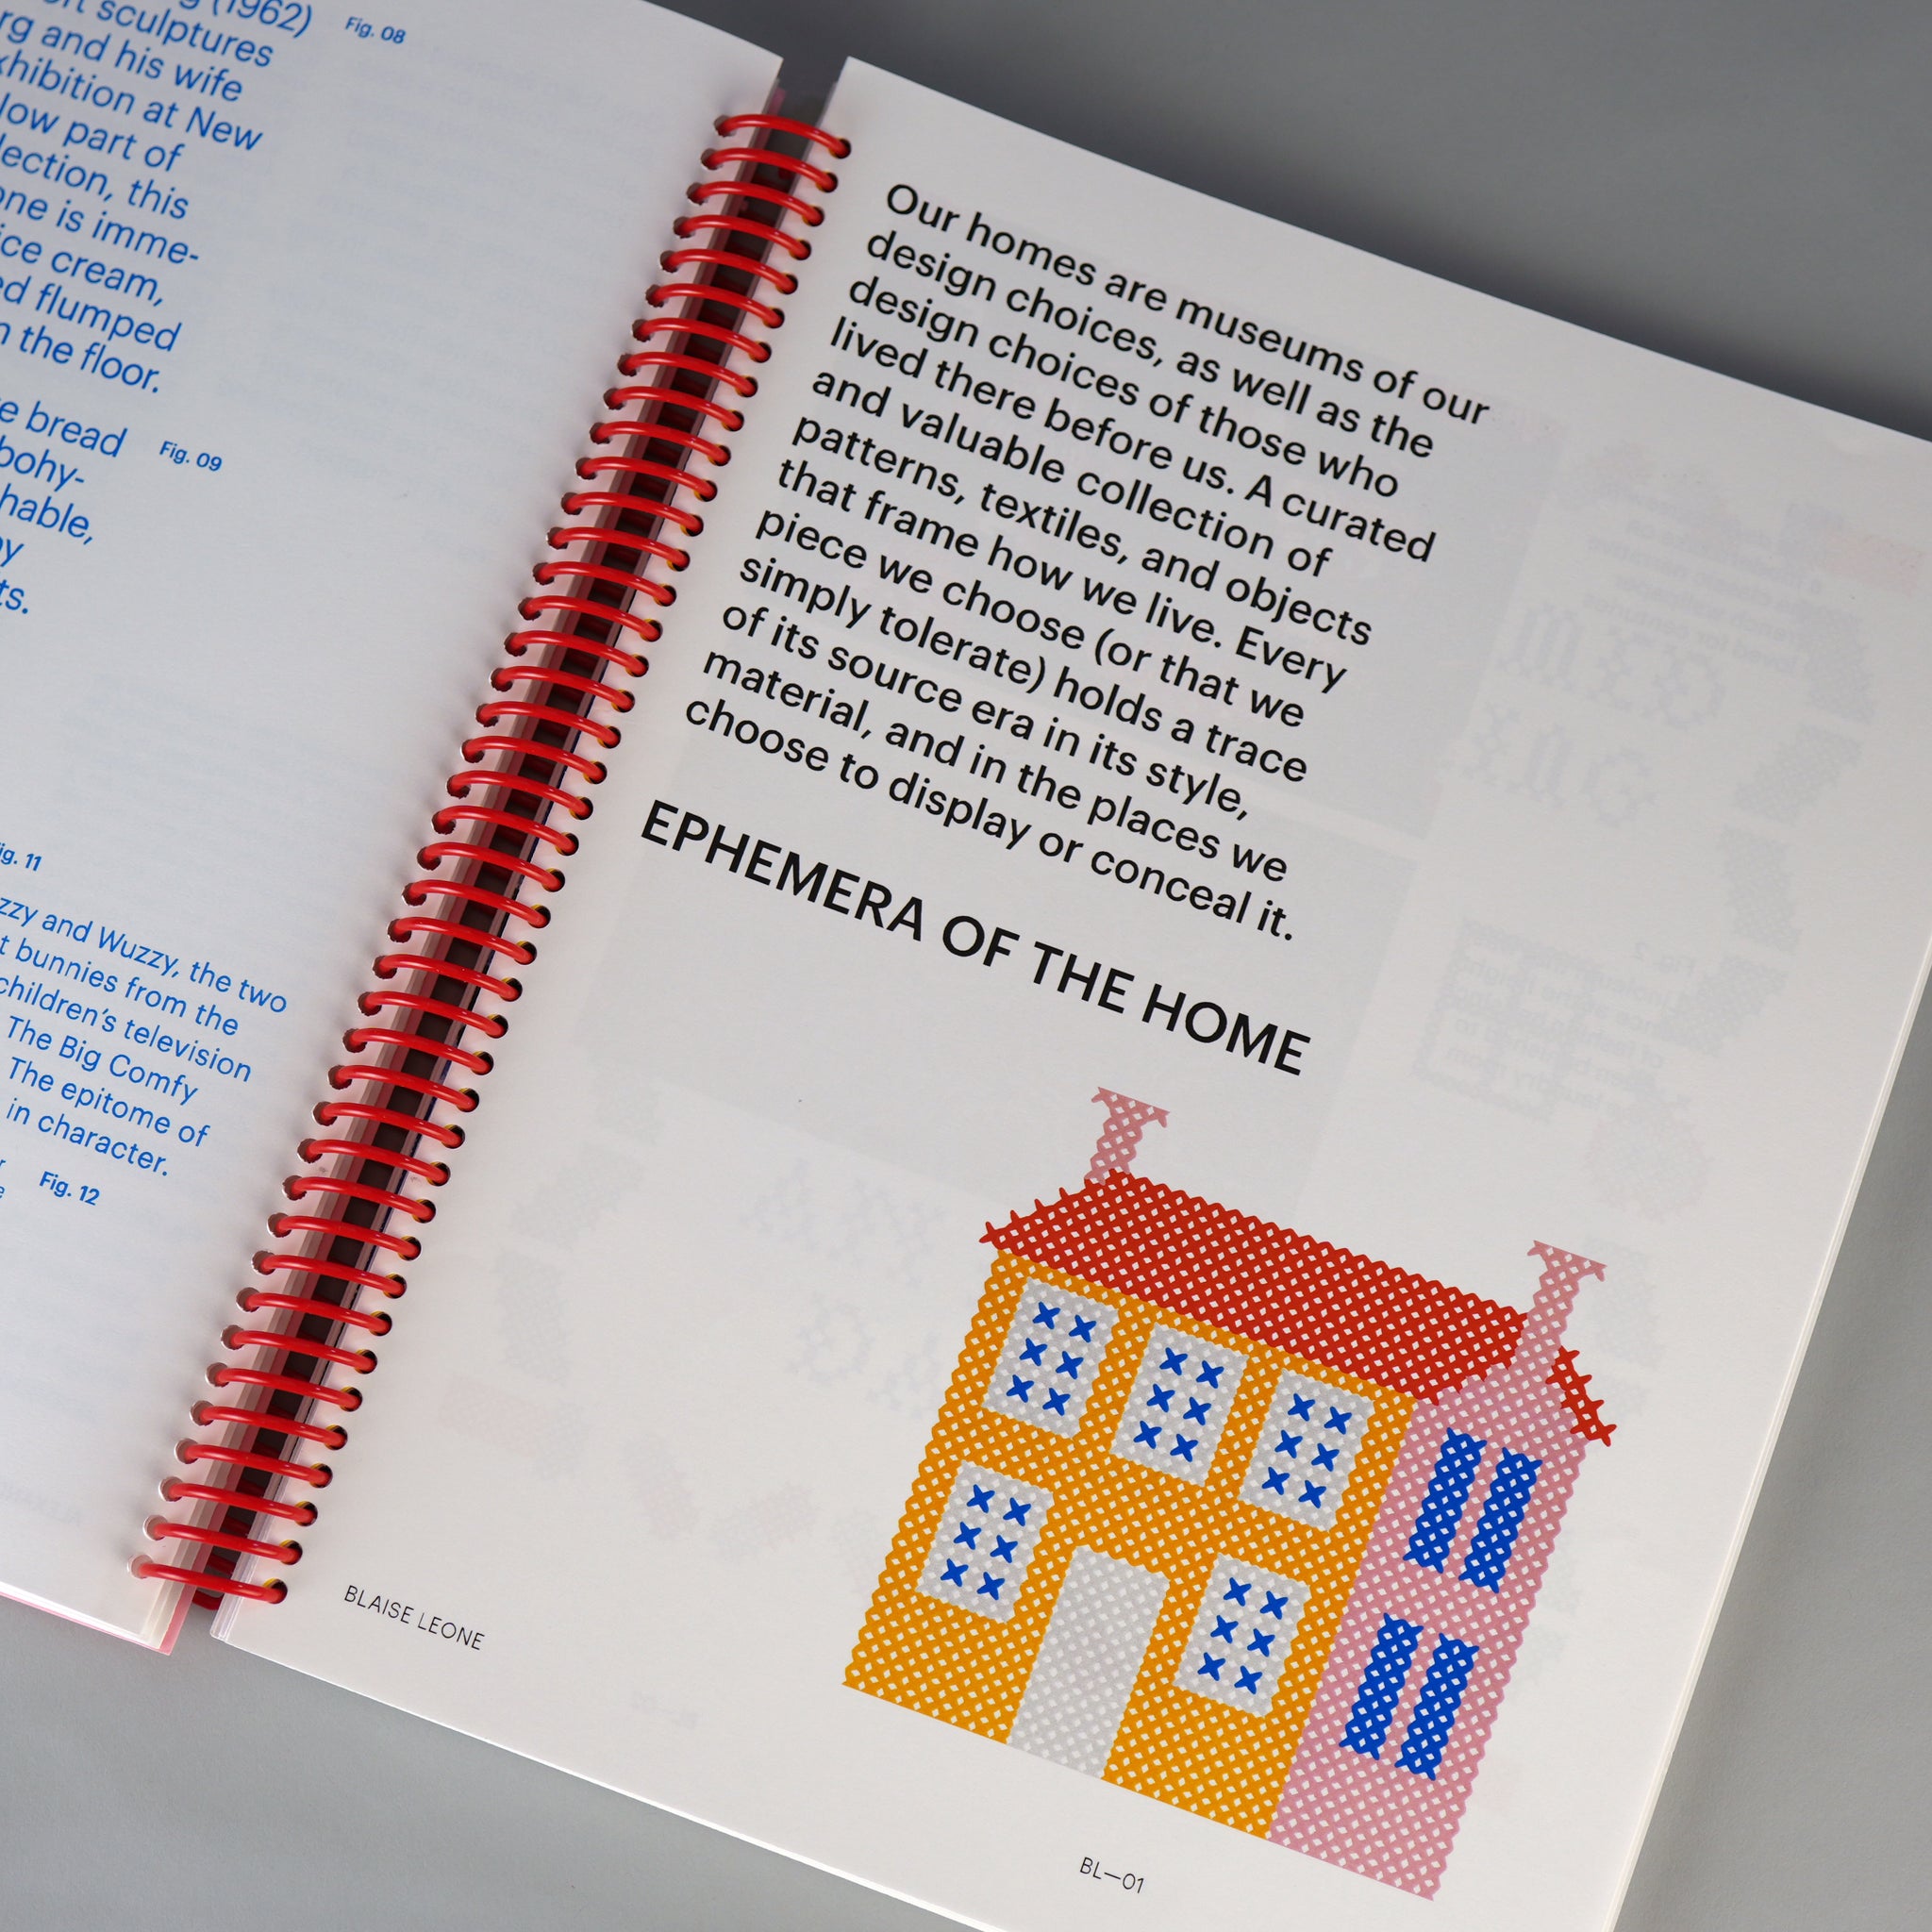 (1962)
Fig. 08
sculptures
and his wife
exhibition at New
part of
this
is imme-
ice cream,
flumped
the floor.
bread
Fig. 09
bohy-
Fig. 11
and Wuzzy, the two
bunnies from the
children's television
The Big Comfy
The epitome of
in character.
Fig. 12
Our homes are museums of our
design choices, as well as the
design choices of those who
lived there before us. A curated
and valuable collection of
patterns, textiles, and objects
that frame how we live. Every
piece we choose (or that we
simply tolerate) holds a trace
of its source era in its style,
material, and in the places we
choose to display or conceal it.
EPHEMERA OF THE HOME
BLAISE LEONE
BL—01